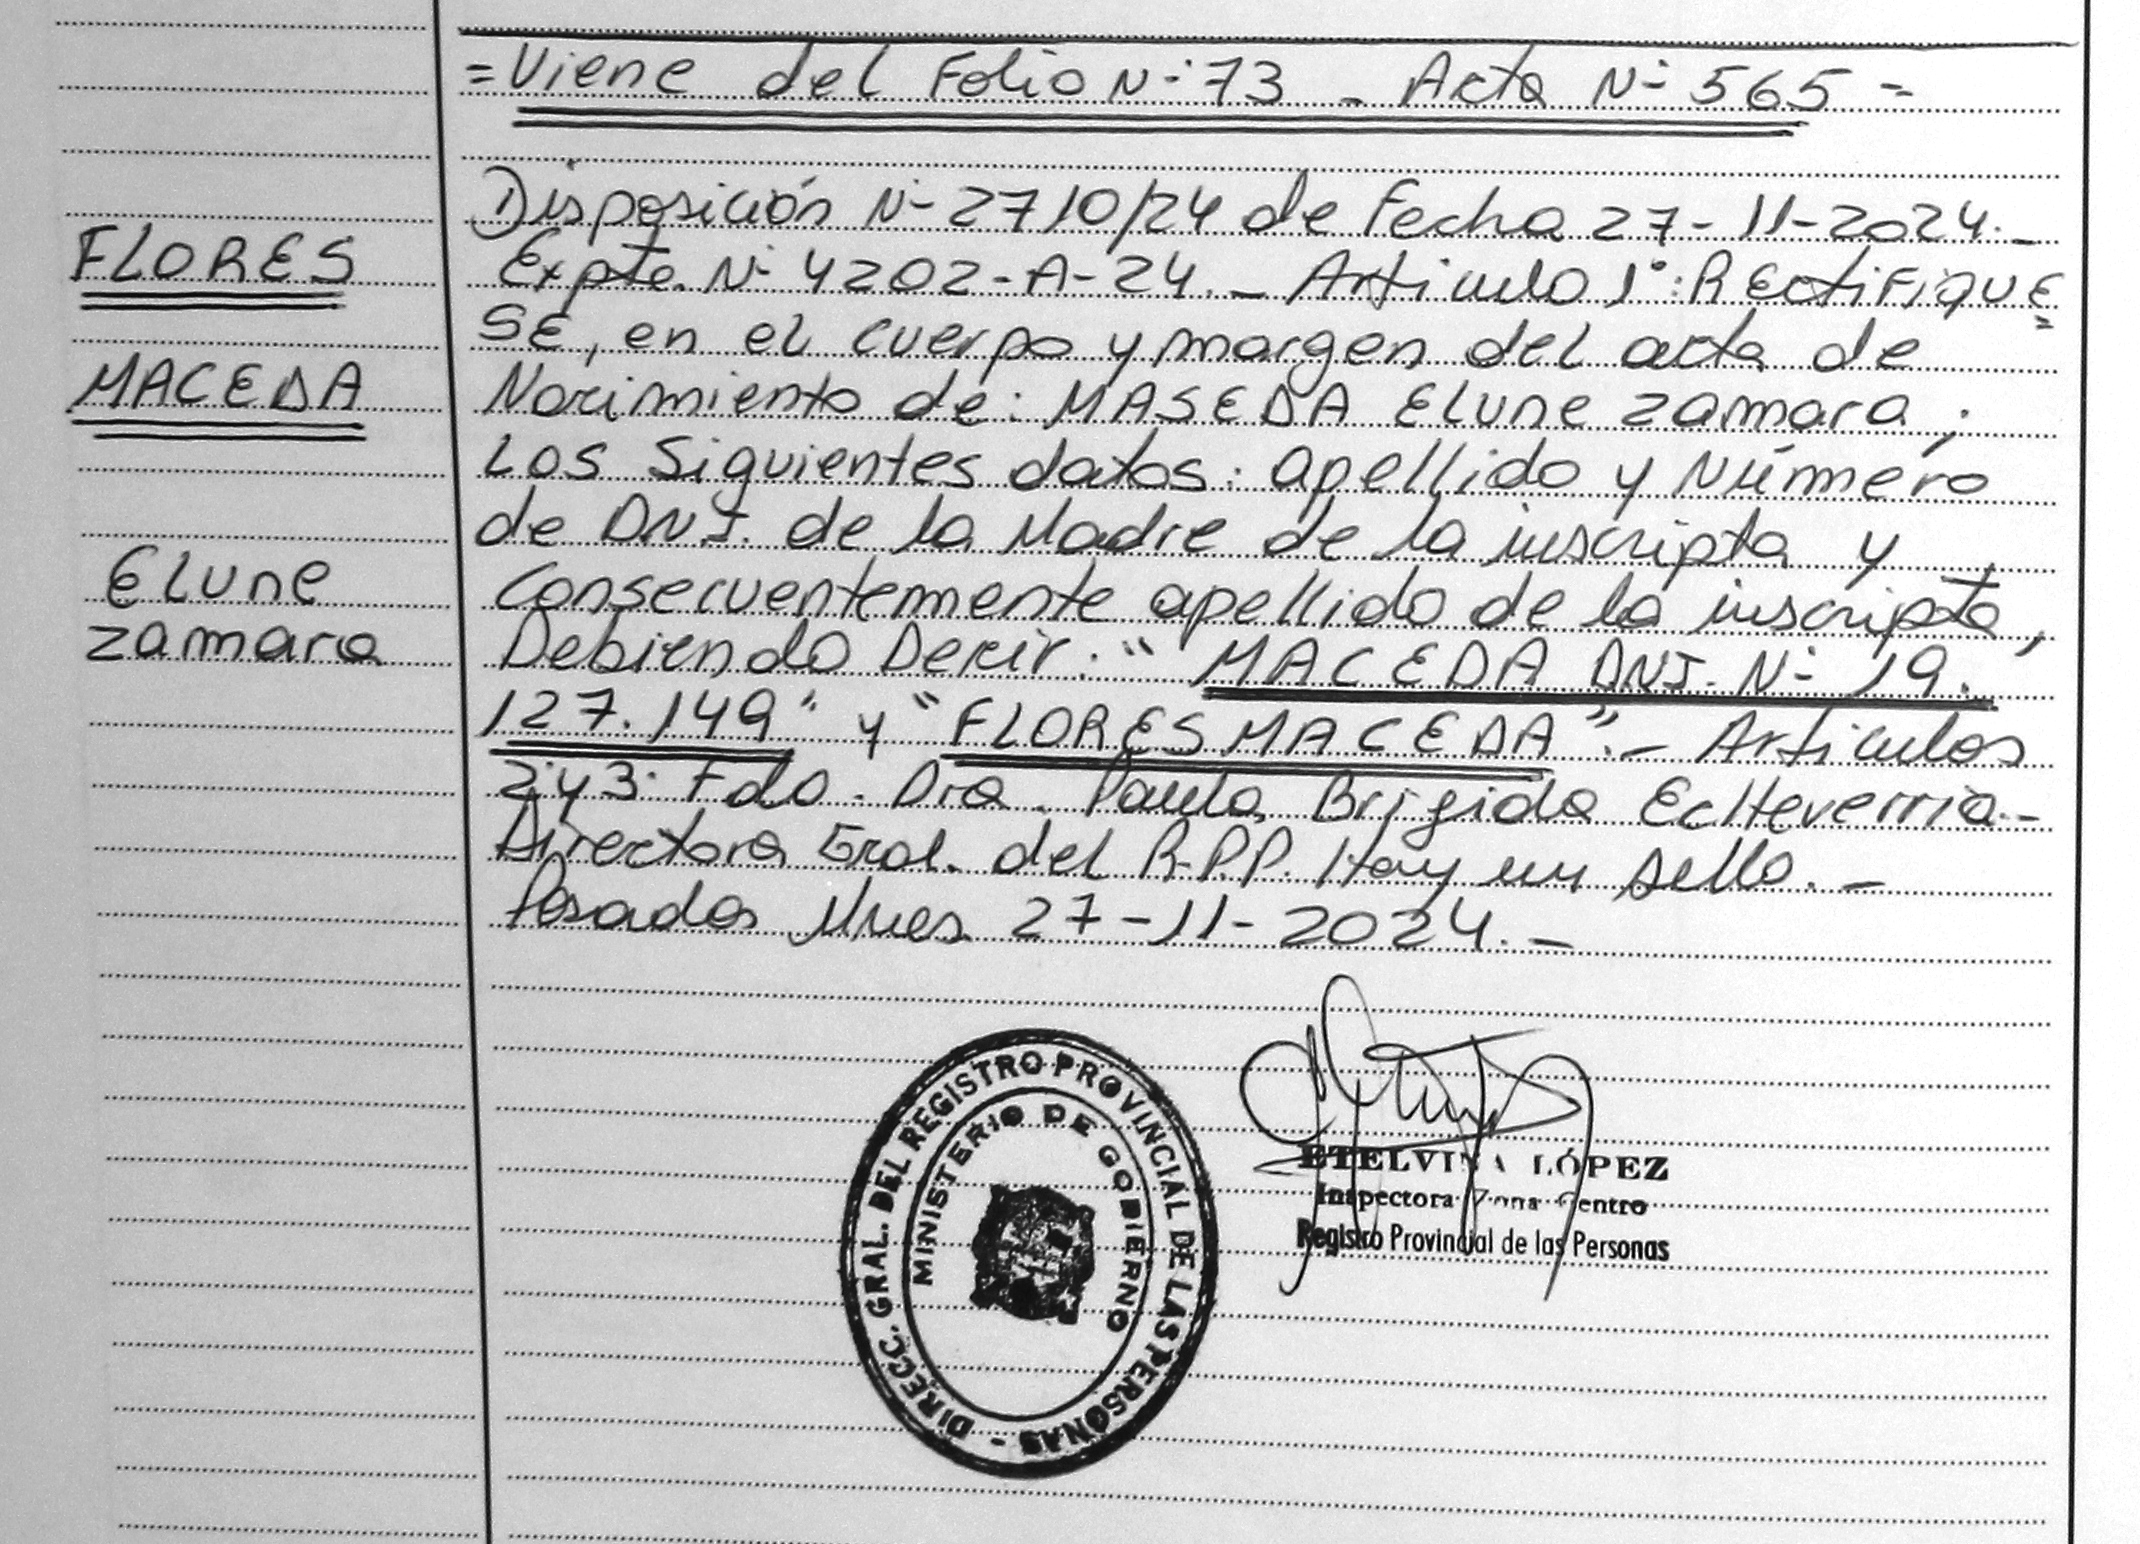 =Viene del Folio Nº 73 - Acta Nº 565=
Disposición Nº 2710/24 de Fecha 27-11-2024.-
Expte. Nº 4202-A-24.- Articulo 1º: RECtiFiQUE=
SE, en el cuerpo y margen del acta de
Nacimiento de: MASEDA ELune Zamara;
Los Siguientes datos: apellido y Número
de DNI. de la Madre de la inscripta y
Consecuentemente apellido de la inscripta,
Debiendo Decir: "MACEDA DNI. Nº 19.
127.149" y "FLORES MACEDA".- Articulos
2º y 3º Fdo. Dra. Paula Brigida EcHeverria.-
Directora Gral. del R.P.P. Hay un sello.-
Posadas Mnes 27-11-2024.-
FLORES
MACEDA
ELune
Zamara
DIRECC. GRAL. DEL REGISTRO PROVINCIAL DE LAS PERSONAS -
MINISTERIO DE GOBIERNO
ETELVINA LÓPEZ
Inspectora Zona Centro
Registro Provincial de las Personas